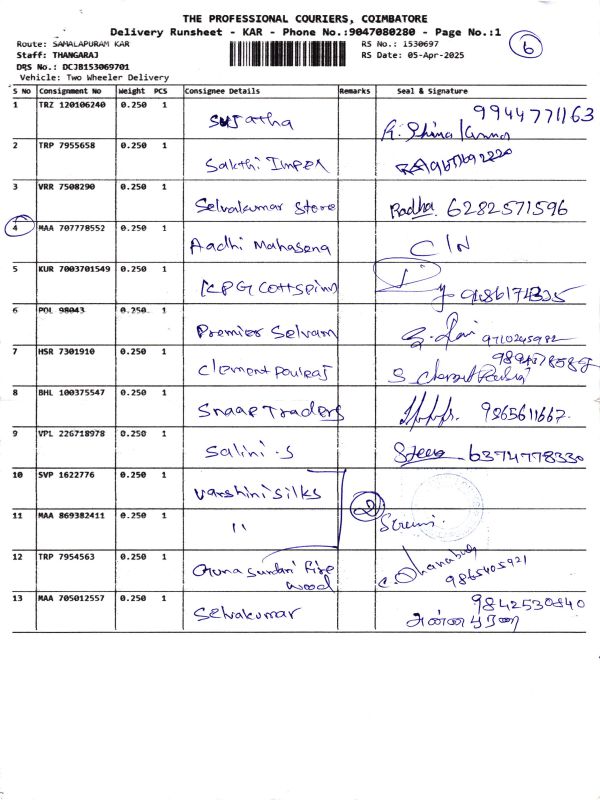 THE PROFESSIONAL COURIERS, COIMBATORE
Delivery Runsheet - KAR - Phone No.:9047080280 - Page No.:1
Route: SAMALAPURAM KAR RS No.: 1530697 6
Staff: THANGARAJ RS Date: 05-Apr-2025
DRS No.: DCJB153069701
Vehicle: Two Wheeler Delivery
S No Consignment No Weight PCS Consignee Details Remarks Seal & Signature
1 TRZ 120106240 0.250 1 Sujatha 9944771163
2 TRP 7955658 0.250 1 Sakthi Impex
3 VRR 7508290 0.250 1 Selvakumar Store Radha. 6282571596
4 MAA 707778552 0.250 1 Aadhi Mahasena C/N
5 KUR 7003701549 0.250 1 KPG Cottspin
6 POL 98043 0.250 1 Premier Selvam 9710245982
7 HSR 7301910 0.250 1 Clement Pauleaj
8 BHL 100375547 0.250 1 Snaap Traders 9865611667
9 VPL 226718978 0.250 1 Salini.S 6374778330
10 SVP 1622776 0.250 1 Varshini silks 2
11 MAA 869382411 0.250 1 "
12 TRP 7954563 0.250 1 Guna sundari fire
wood C. Dhanabag
9865405921
13 MAA 705012557 0.250 1 Selvakumar 9842530840